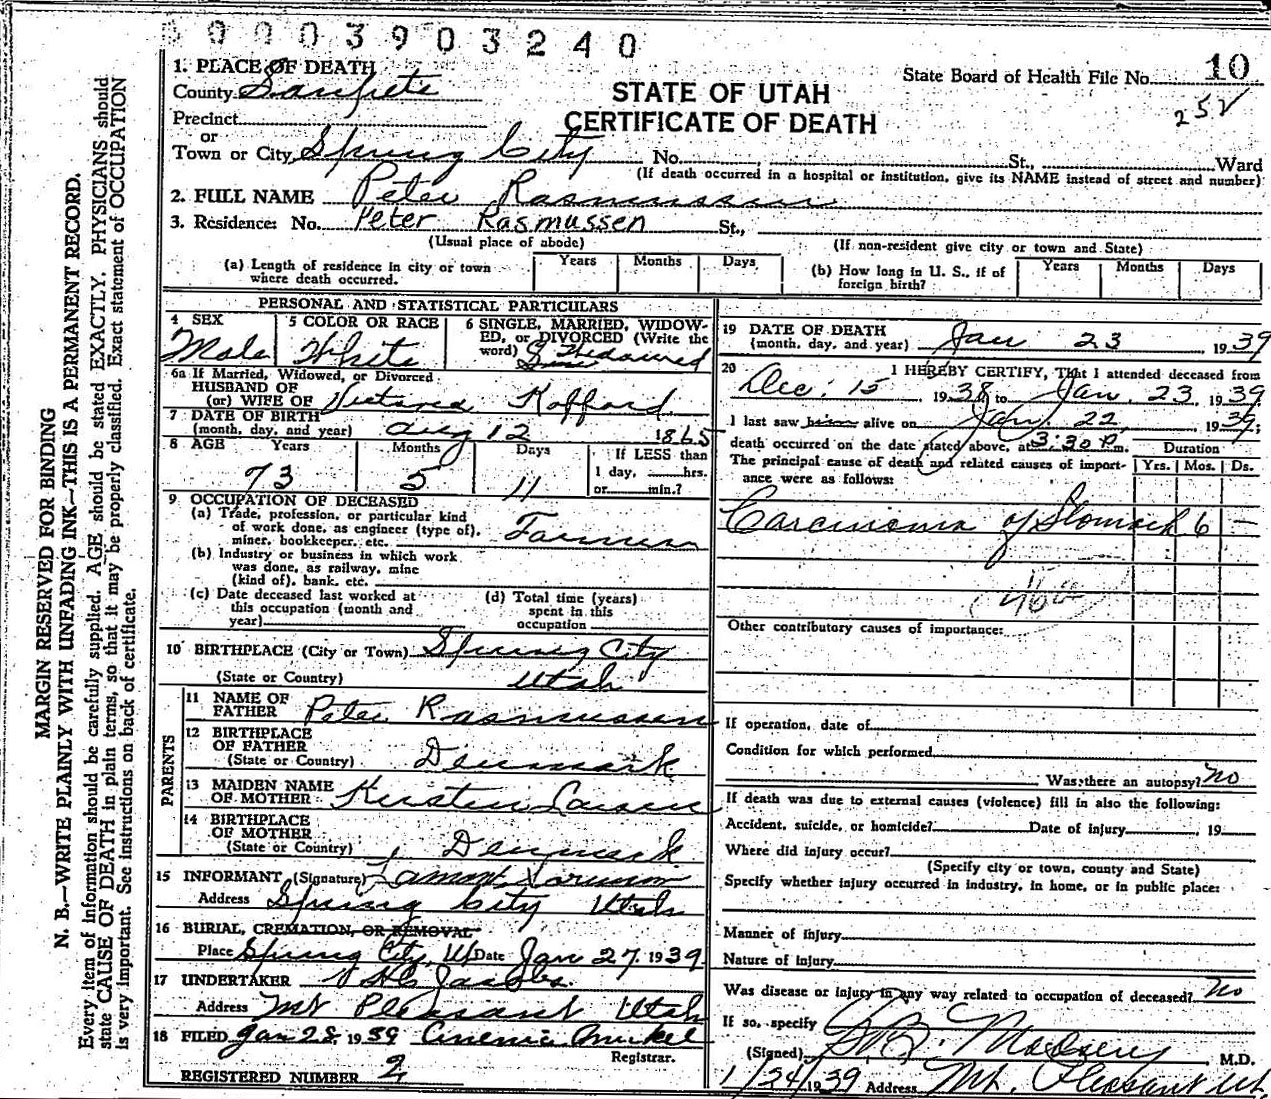 0 0 0 0 3 9 0 3 2 4 0
1. PLACE OF DEATH
County Sanpete
Precinct
or
Town or City Spring City No. St., Ward
STATE OF UTAH
CERTIFICATE OF DEATH
State Board of Health File No. 10
252
(If death occurred in a hospital or institution, give its NAME instead of street and number)
2. FULL NAME Peter Rasmussen
3. Residence: No. Peter Rasmussen St.,
(Usual place of abode) (If non-resident give city or town and State)
(a) Length of residence in city or town where death occurred. Years Months Days
(b) How long in U. S., if of foreign birth? Years Months Days
PERSONAL AND STATISTICAL PARTICULARS
4 SEX Male
5 COLOR OR RACE White
6 SINGLE, MARRIED, WIDOW-
ED, or DIVORCED (Write the
word) Widowed
6a If Married, Widowed, or Divorced
HUSBAND OF
(or) WIFE OF Victoria Kofford
7 DATE OF BIRTH
(month, day, and year) Aug 12 1865
8 AGE Years Months Days If LESS than
73 5 11 1 day, hrs.
or min.?
9 OCCUPATION OF DECEASED
(a) Trade, profession, or particular kind
of work done, as engineer (type of),
miner, bookkeeper, etc. Farmer
(b) Industry or business in which work
was done, as railway, mine
(kind of), bank, etc.
(c) Date deceased last worked at
this occupation (month and
year)
(d) Total time (years)
spent in this
occupation
10 BIRTHPLACE (City or Town) Spring City
(State or Country) Utah
PARENTS
11 NAME OF
FATHER Peter Rasmussen
12 BIRTHPLACE
OF FATHER
(State or Country) Denmark
13 MAIDEN NAME
OF MOTHER Kersten Larsen
14 BIRTHPLACE
OF MOTHER
(State or Country) Denmark
15 INFORMANT (Signature) Lamont Sorenson
Address Spring City Utah
16 BURIAL, CREMATION, OR REMOVAL
Place Spring City, U Date Jan 27, 1939
17 UNDERTAKER Jacobs
Address Mt Pleasant Utah
18 FILED Jan 28 1939
Registrar.
REGISTERED NUMBER 2
19 DATE OF DEATH
(month, day, and year) Jan 23 1939
20 I HEREBY CERTIFY, That I attended deceased from
Dec. 15 1938 to Jan. 23, 1939
I last saw him alive on Jan 22, 1939;
death occurred on the date stated above, at 3:30 P.m.
The principal cause of death and related causes of import-
ance were as follows:
Duration
Yrs. Mos. Ds.
Carcinoma of Stomach 6 —
Other contributory causes of importance:
If operation, date of
Condition for which performed
Was there an autopsy? No
If death was due to external causes (violence) fill in also the following:
Accident, suicide, or homicide? Date of injury , 19
Where did injury occur?
(Specify city or town, county and State)
Specify whether injury occurred in industry, in home, or in public place:
Manner of Injury
Nature of Injury
Was disease or injury in any way related to occupation of deceased? No
If so, specify
(Signed) M.D.
1/24/1939 Address Mt. Pleasant Ut.
MARGIN RESERVED FOR BINDING
N. B.—WRITE PLAINLY WITH UNFADING INK—THIS IS A PERMANENT RECORD.
Every item of information should be carefully supplied. AGE should be stated EXACTLY. PHYSICIANS should
state CAUSE OF DEATH in plain terms, so that it may be properly classified. Exact statement of OCCUPATION
is very important. See instructions on back of certificate.